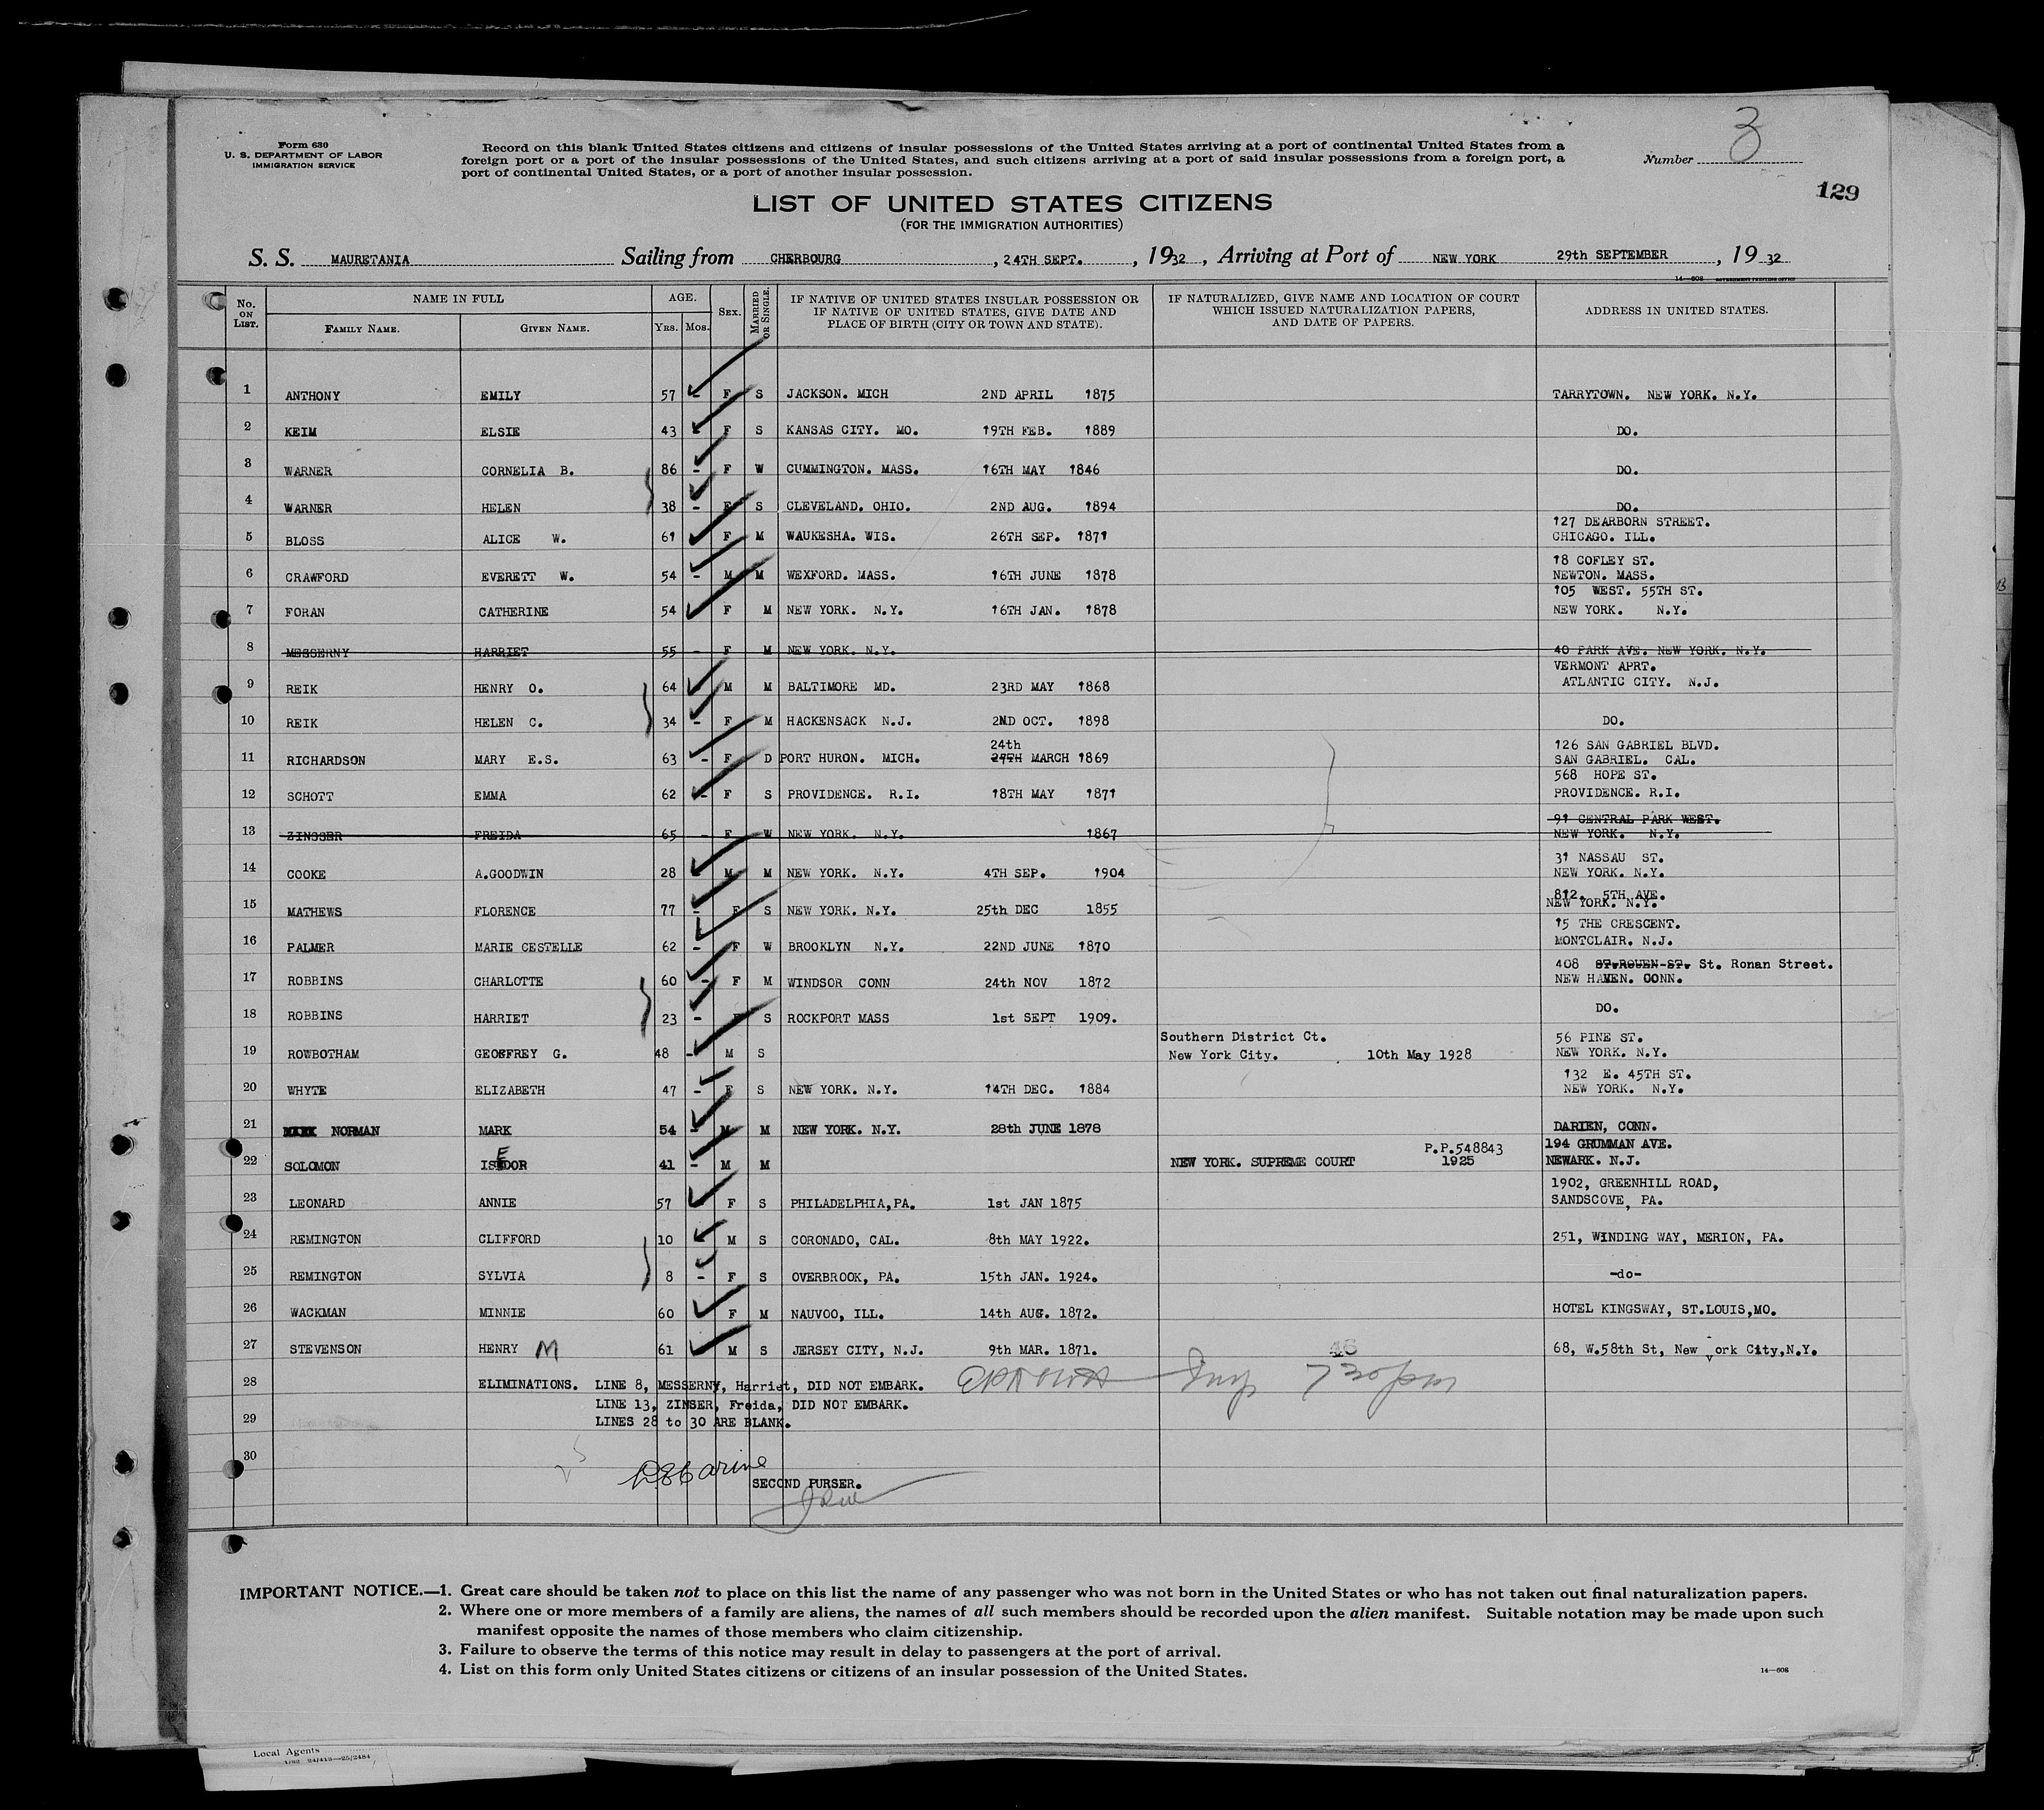 Form 630
U. S. DEPARTMENT OF LABOR
IMMIGRATION SERVICE
Record on this blank United States citizens and citizens of insular possessions of the United States arriving at a port of continental United States from a
foreign port or a port of the insular possessions of the United States, and such citizens arriving at a port of said insular possessions from a foreign port, a
port of continental United States, or a port of another insular possession.
Number 3
129
LIST OF UNITED STATES CITIZENS
(FOR THE IMMIGRATION AUTHORITIES)
S. S. MAURETANIA Sailing from CHERBOURG , 24TH SEPT. , 1932 , Arriving at Port of NEW YORK 29th SEPTEMBER , 19 32
14—608 GOVERNMENT PRINTING OFFICE
No. ON LIST. NAME IN FULL AGE. SEX. MARRIED OR SINGLE. IF NATIVE OF UNITED STATES INSULAR POSSESSION OR IF NATIVE OF UNITED STATES, GIVE DATE AND PLACE OF BIRTH (CITY OR TOWN AND STATE). IF NATURALIZED, GIVE NAME AND LOCATION OF COURT WHICH ISSUED NATURALIZATION PAPERS, AND DATE OF PAPERS. ADDRESS IN UNITED STATES.
FAMILY NAME. GIVEN NAME. YRS. MOS.
1 ANTHONY EMILY 57 - F S JACKSON. MICH 2ND APRIL 1875 TARRYTOWN. NEW YORK. N.Y.
2 KEIM ELSIE 43 F S KANSAS CITY. MO. 19TH FEB. 1889 DO.
3 WARNER CORNELIA B. 86 - F W CUMMINGTON. MASS. 16TH MAY 1846 DO.
4 WARNER HELEN 38 - F S CLEVELAND. OHIO. 2ND AUG. 1894 DO.
127 DEARBORN STREET.
5 BLOSS ALICE W. 61 F M WAUKESHA. WIS. 26TH SEP. 1871 CHICAGO. ILL.
18 COFLEY ST.
6 CRAWFORD EVERETT W. 54 - M M WEXFORD. MASS. 16TH JUNE 1878 NEWTON. MASS.
105 WEST. 55TH ST.
7 FORAN CATHERINE 54 F M NEW YORK. N.Y. 16TH JAN. 1878 NEW YORK. N.Y.
8 MESSERNY HARRIET 55 - F M NEW YORK. N.Y. 40 PARK AVE. NEW YORK. N.Y.
VERMONT APRT.
9 REIK HENRY O. 64 M M BALTIMORE MD. 23RD MAY 1868 ATLANTIC CITY. N.J.
10 REIK HELEN C. 34 - F M HACKENSACK N.J. 2ND OCT. 1898 DO.
24th 126 SAN GABRIEL BLVD.
11 RICHARDSON MARY E.S. 63 - F D PORT HURON. MICH. 27TH MARCH 1869 SAN GABRIEL. CAL.
568 HOPE ST.
12 SCHOTT EMMA 62 - F S PROVIDENCE. R.I. 18TH MAY 1871 PROVIDENCE. R.I.
91 CENTRAL PARK WEST.
13 ZINSSER FREIDA 65 - F W NEW YORK. N.Y. 1867 NEW YORK. N.Y.
31 NASSAU ST.
14 COOKE A.GOODWIN 28 M M NEW YORK. N.Y. 4TH SEP. 1904 NEW YORK. N.Y.
812. 5TH AVE.
15 MATHEWS FLORENCE 77 - F S NEW YORK. N.Y. 25th DEC 1855 NEW YORK. N.Y.
15 THE CRESCENT.
16 PALMER MARIE CESTELLE 62 - F W BROOKLYN N.Y. 22ND JUNE 1870 MONTCLAIR. N.J.
408 ST.ROUEN ST. St. Ronan Street.
17 ROBBINS CHARLOTTE 60 - F M WINDSOR CONN 24th NOV 1872 NEW HAVEN. CONN.
18 ROBBINS HARRIET 23 - F S ROCKPORT MASS 1st SEPT 1909. DO.
Southern District Ct. 56 PINE ST.
19 ROWBOTHAM GEOFFREY G. 48 - M S New York City. 10th May 1928 NEW YORK. N.Y.
132 E. 45TH ST.
20 WHYTE ELIZABETH 47 - F S NEW YORK. N.Y. 14TH DEC. 1884 NEW YORK. N.Y.
21 MARK NORMAN MARK 54 - M M NEW YORK. N.Y. 28th JUNE 1878 DARIEN, CONN.
P.P.548843 194 GRUMMAN AVE.
22 SOLOMON ISEDOR 41 - M M NEW YORK. SUPREME COURT 1925 NEWARK. N.J.
1902, GREENHILL ROAD,
23 LEONARD ANNIE 57 F S PHILADELPHIA,PA. 1st JAN 1875 SANDSCOVE, PA.
24 REMINGTON CLIFFORD 10 M S CORONADO, CAL. 8th MAY 1922. 251, WINDING WAY, MERION, PA.
25 REMINGTON SYLVIA 8 - F S OVERBROOK, PA. 15th JAN. 1924. -do-
26 WACKMAN MINNIE 60 F M NAUVOO, ILL. 14th AUG. 1872. HOTEL KINGSWAY, ST.LOUIS,MO.
27 STEVENSON HENRY M 61 M S JERSEY CITY, N.J. 9th MAR. 1871. 46 68, W.58th St, New York City,N.Y.
28 ELIMINATIONS. LINE 8, MESSERNY, Harriet, DID NOT EMBARK. Insp 7 30 pm
LINE 13, ZINSER, Freida, DID NOT EMBARK.
29 LINES 28 to 30 ARE BLANK.
30
SECOND PURSER.
IMPORTANT NOTICE.—1. Great care should be taken not to place on this list the name of any passenger who was not born in the United States or who has not taken out final naturalization papers.
2. Where one or more members of a family are aliens, the names of all such members should be recorded upon the alien manifest. Suitable notation may be made upon such
manifest opposite the names of those members who claim citizenship.
3. Failure to observe the terms of this notice may result in delay to passengers at the port of arrival.
4. List on this form only United States citizens or citizens of an insular possession of the United States.
14—608
Local Agents